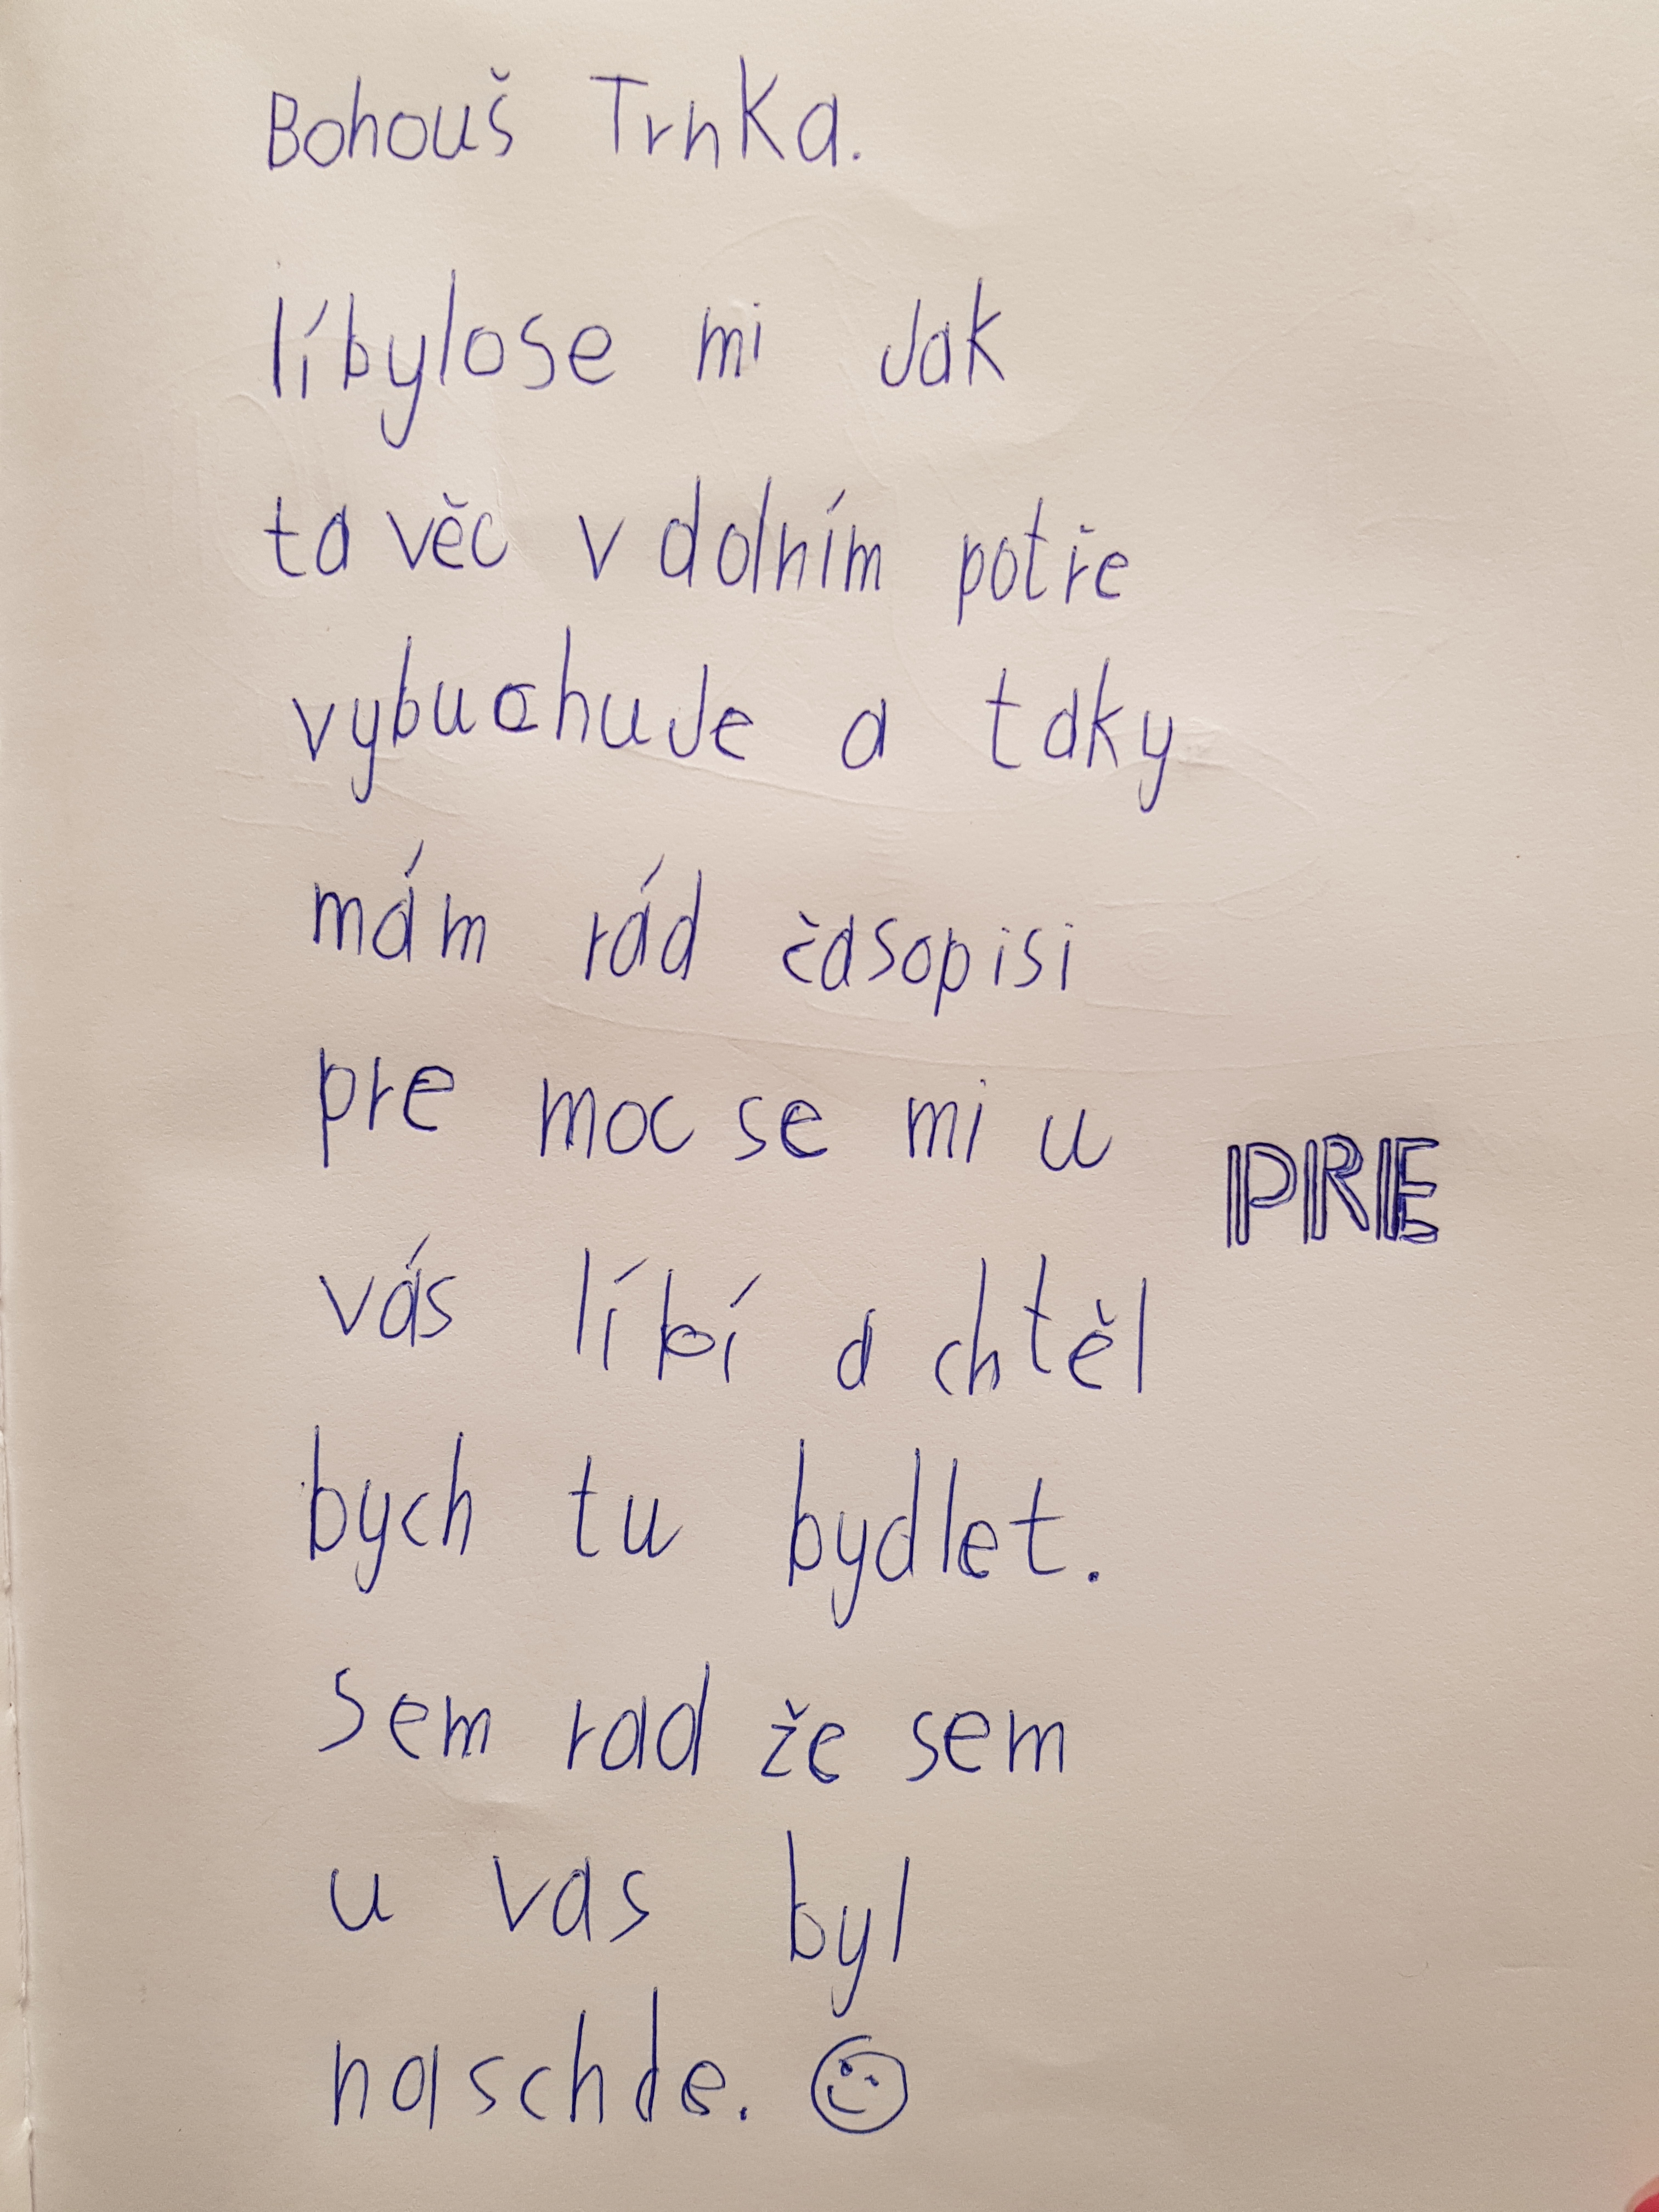 Bohouš Trnka.
líbylose mi Jak
ta věc v dolním potře
vybuchuJe a taky
mám rád časopisi
pre moc se mi u
PRE
vás líbí a chtěl
bych tu bydlet.
sem rad že sem
u vas byl
naschde.